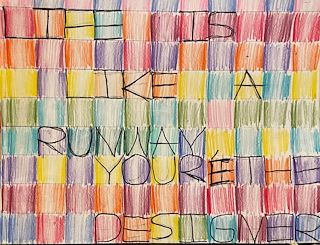 LIFE IS
LIKE A
RUNWAY
YOU'RE THE
DESIGNER